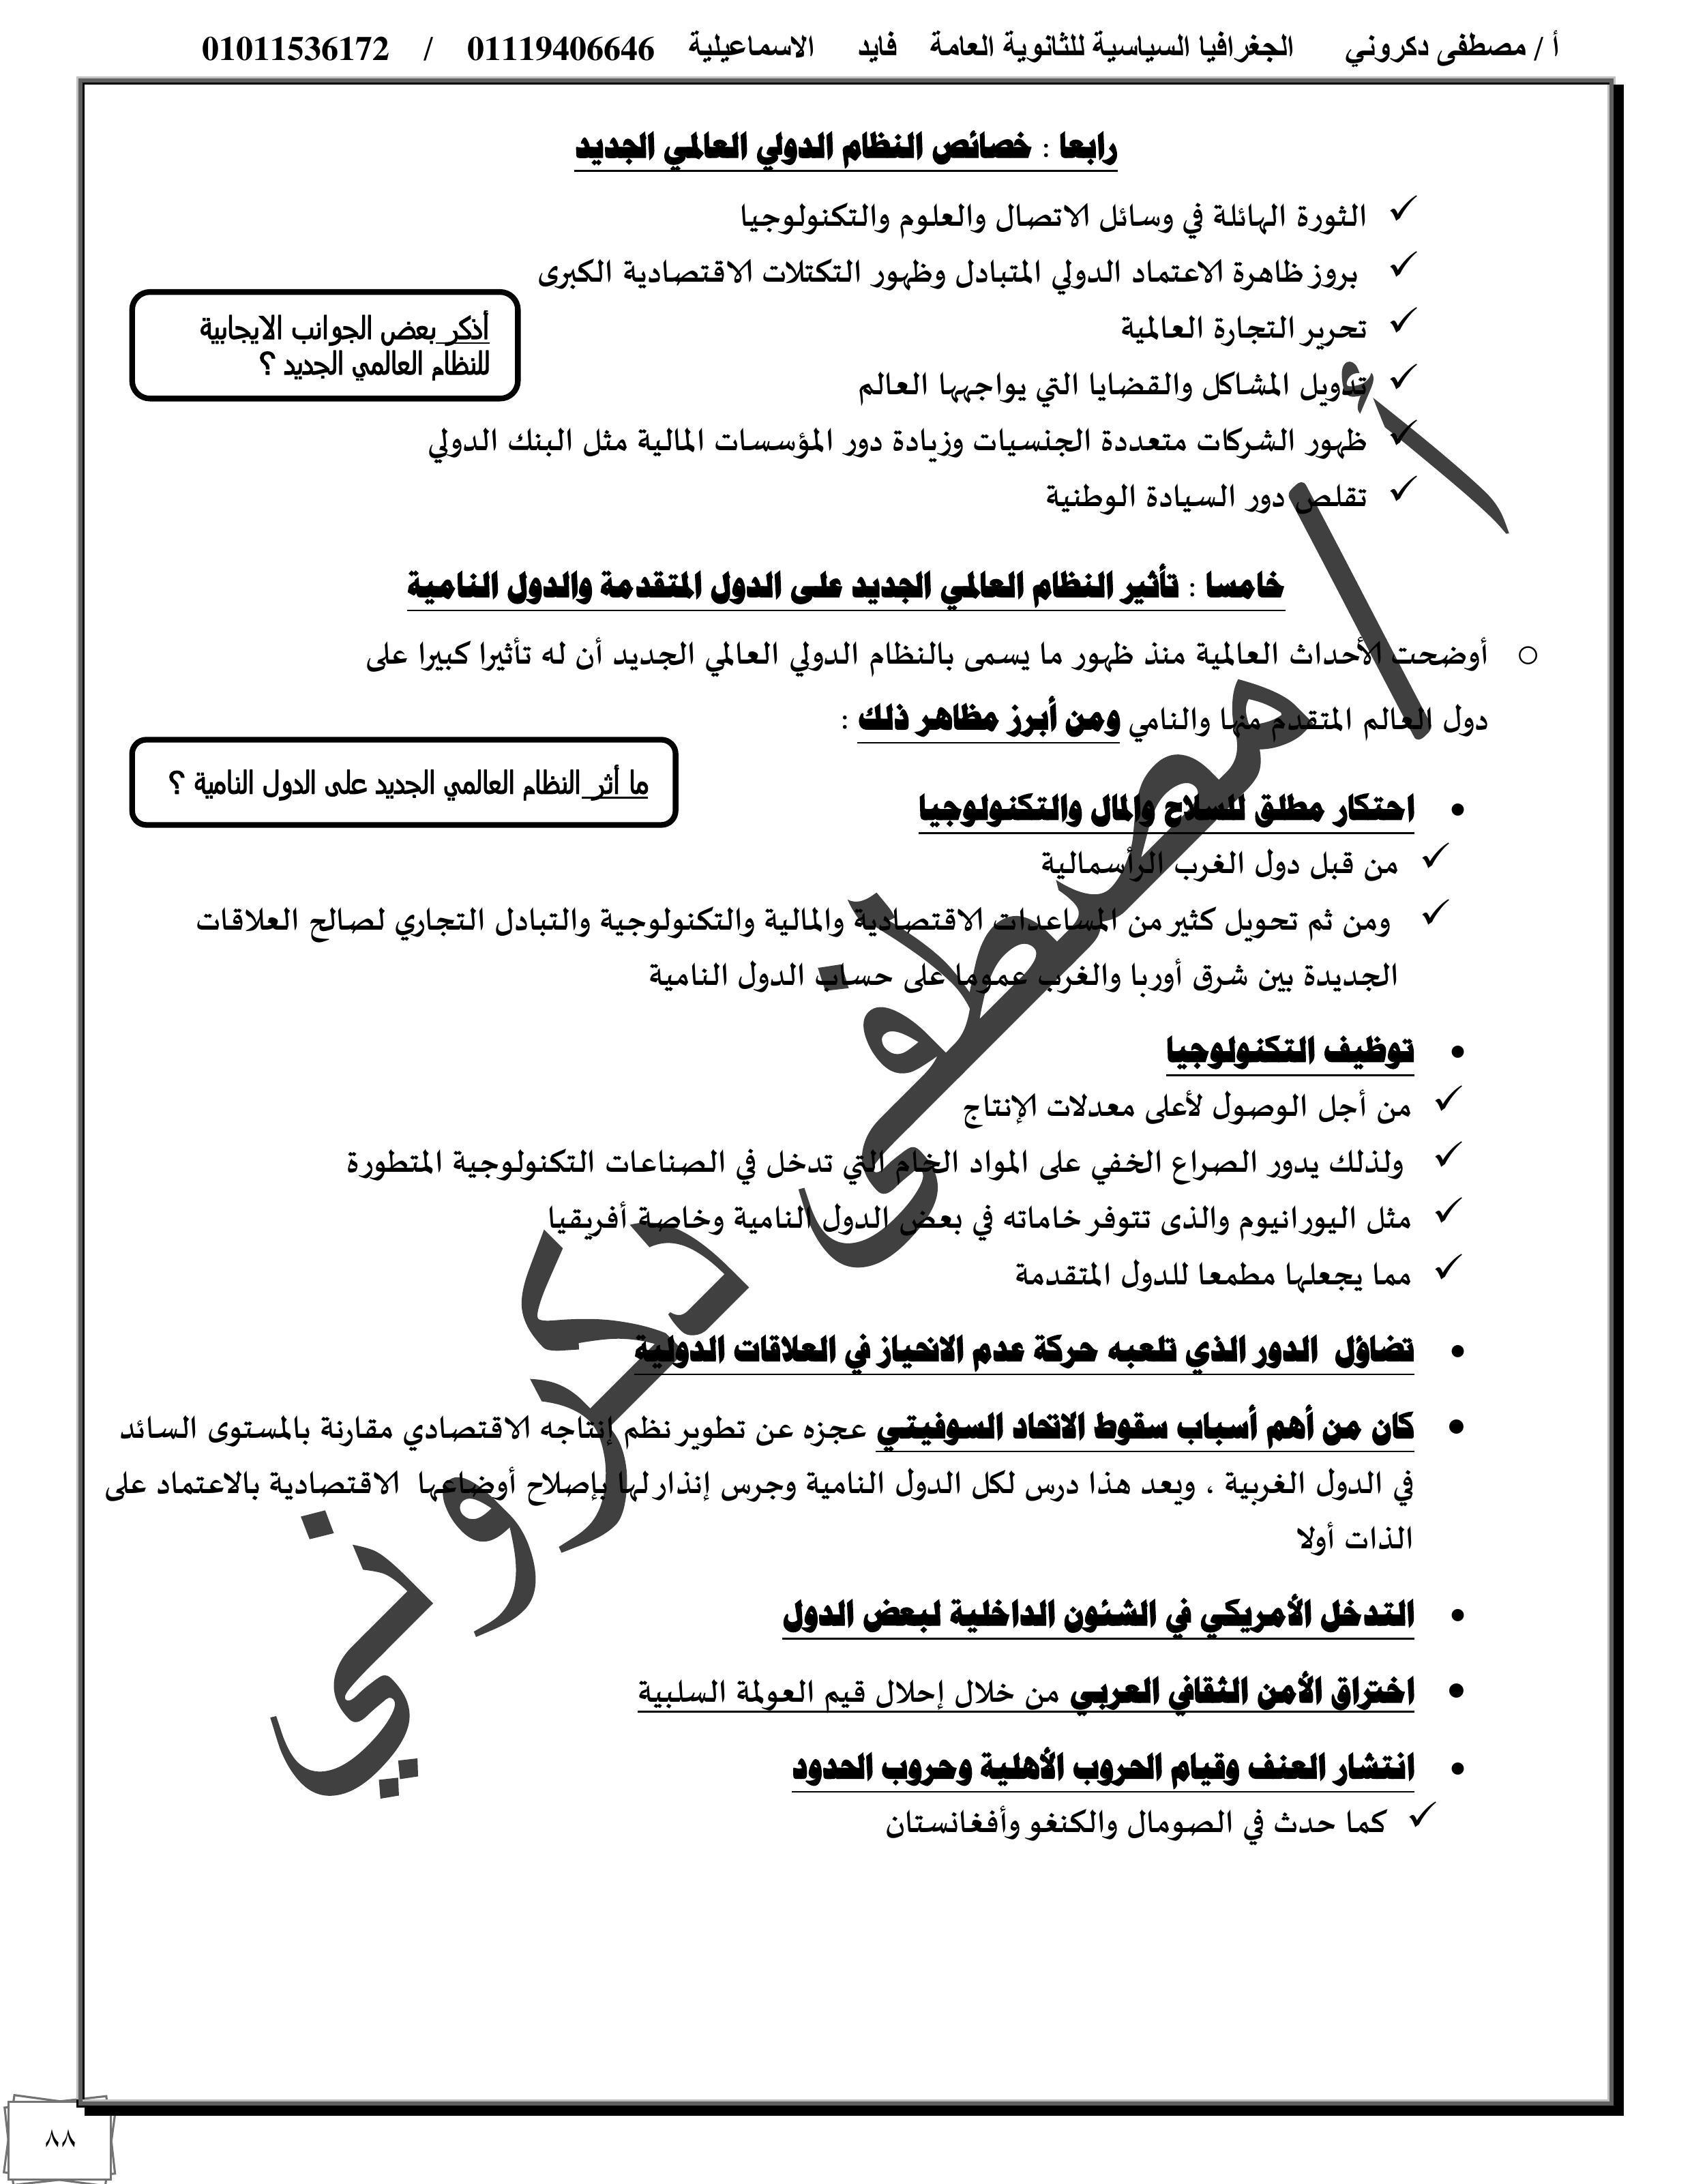 أ / مصطفى دكروني الجغرافيا السياسية للثانوية العامة فايد الاسماعيلية 01119406646 / 01011536172
رابعا : خصائص النظام الدولي العالمي الجديد
✓ الثورة الهائلة في وسائل الاتصال والعلوم والتكنولوجيا
✓ بروز ظاهرة الاعتماد الدولي المتبادل وظهور التكتلات الاقتصادية الكبرى
✓ تحرير التجارة العالمية
أذكر بعض الجوانب الايجابية
للنظام العالمي الجديد ؟
✓ تدويل المشاكل والقضايا التي يواجهها العالم
✓ ظهور الشركات متعددة الجنسيات وزيادة دور المؤسسات المالية مثل البنك الدولي
✓ تقلص دور السيادة الوطنية
خامسا : تأثير النظام العالمي الجديد على الدول المتقدمة والدول النامية
○ أوضحت الأحداث العالمية منذ ظهور ما يسمى بالنظام الدولي العالمي الجديد أن له تأثيرا كبيرا على
دول العالم المتقدم منها والنامي ومن أبرز مظاهر ذلك :
ما أثر النظام العالمي الجديد على الدول النامية ؟
• احتكار مطلق للسلاح والمال والتكنولوجيا
✓ من قبل دول الغرب الرأسمالية
✓ ومن ثم تحويل كثير من المساعدات الاقتصادية والمالية والتكنولوجية والتبادل التجاري لصالح العلاقات
الجديدة بين شرق أوربا والغرب عموما على حساب الدول النامية
• توظيف التكنولوجيا
✓ من أجل الوصول لأعلى معدلات الإنتاج
✓ ولذلك يدور الصراع الخفي على المواد الخام التي تدخل في الصناعات التكنولوجية المتطورة
✓ مثل اليورانيوم والذى تتوفر خاماته في بعض الدول النامية وخاصة أفريقيا
✓ مما يجعلها مطمعا للدول المتقدمة
• تضاؤل الدور الذي تلعبه حركة عدم الانحياز في العلاقات الدولية
• كان من أهم أسباب سقوط الاتحاد السوفيتي عجزه عن تطوير نظم إنتاجه الاقتصادي مقارنة بالمستوى السائد
في الدول الغربية ، ويعد هذا درس لكل الدول النامية وجرس إنذار لها بإصلاح أوضاعها الاقتصادية بالاعتماد على
الذات أولا
• التدخل الأمريكي في الشئون الداخلية لبعض الدول
• اختراق الأمن الثقافي العربي من خلال إحلال قيم العولمة السلبية
• انتشار العنف وقيام الحروب الأهلية وحروب الحدود
✓ كما حدث في الصومال والكنغو وأفغانستان
أ / مصطفى دكروني
٨٨